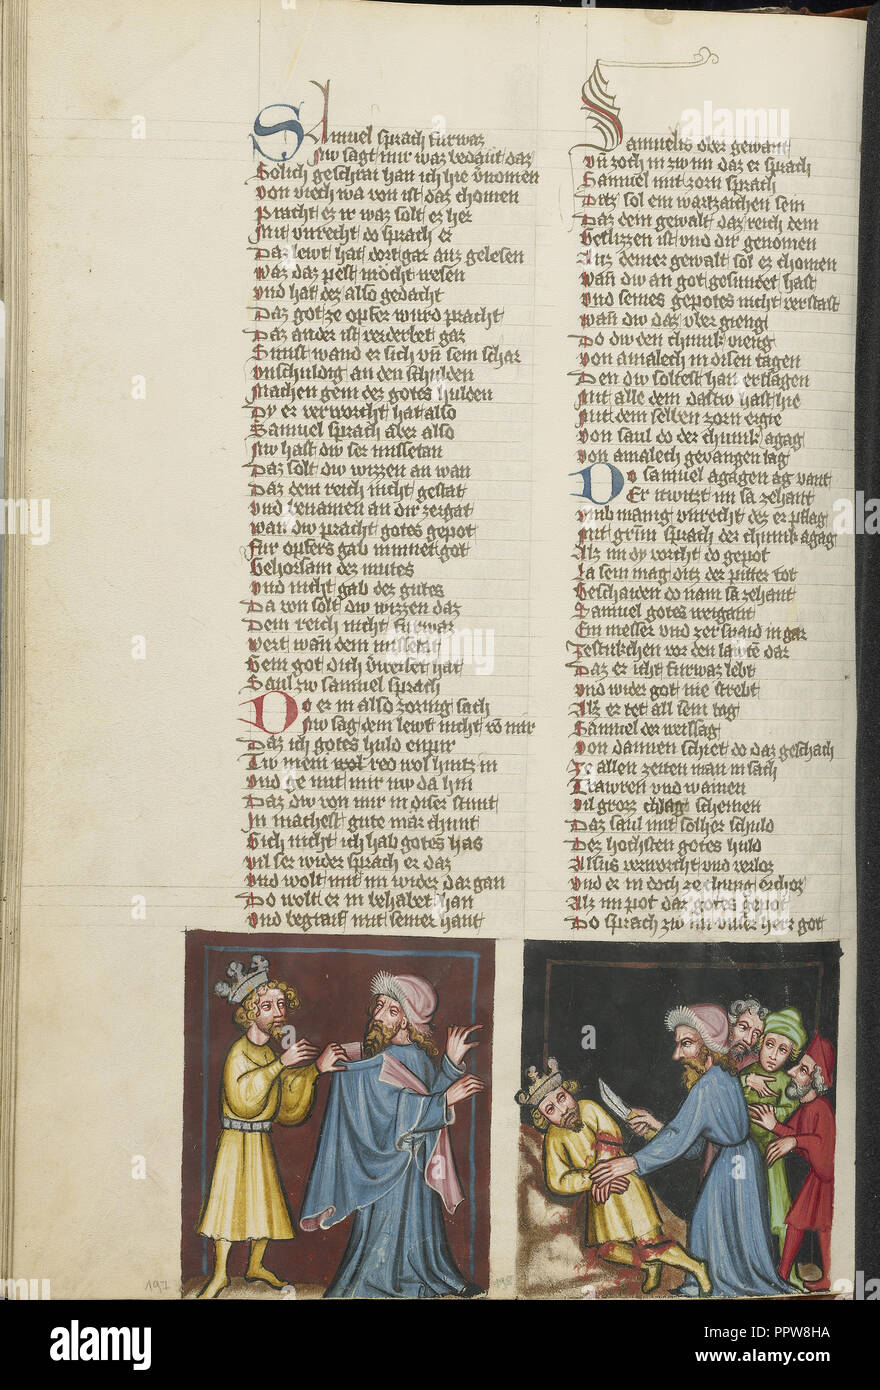 Samuel sprach fürwar
Nw sagt mir waz bedäut daz
Solich geschrai han ich hie v̈nomen
Von viech wa von ist daz chomen
Pracht ez ir waz solt ez her
Mit vnrecht do sprach er
Daz lewt hat dort gar auz gelesen
Waz daz pest mocht wesen
Vnd hat dez also gedacht
Daz got ze opfer wurd pracht
Daz ander ist verderbet gar
Sunst wand er sich vn̄ sein schar
Vnschuldig an den schulden
Machen gein dez gotes hulden
Dy er verworcht hat also
Samuel sprach aber also
Nw hast diw ser missetan
Daz solt diw wizzen an wan
Daz dein reich nicht gestat
Vnd benamen an dir zergat
Wan diw pracht gotes gepot
Für opfers gab nimmet got
Gehorsam dez mutes
Vnd nicht gab dez gutes
Da von solt diw wizzen daz
Dein reich nicht fürwar
Wert wan̄ dein missetat
Gein got dich v̈werket hat
Saul zw samuel sprach
Do er in also zornig sach
Nw sag dem lewt nicht vō mir
Daz ich gotes huld enpir
Tw mein wol red wol hintz in
Vnd ge mit mir nw da hin
Daz diw von mir in diser stunt
In machest gute mär chunt
Sich nicht ich hab gotes has
Vil ser wider sprach er daz
Vnd wolt mit im wider dar gan
Do wolt er in behabet han
Vnd begraif mit seiner hant
Samuelis ober gewant
Vn̄ zoch in zw im daz er sprach
Samuel mit zorn sprach
Ditz sol ein wartzaichen sein
Daz dem gewalt daz reich dein
Geslizzen ist vnd dir genomen
Auz deiner gewalt sol ez chomen
Wan̄ diw an got gesundet hast
Vnd seines gepotes nicht verstast
Wan̄ diw daz vber gieng
Do diw den chunik vieng
Von amalech in disen tagen
Den diw soltest han erslagen
Mit alle dem daz diw hast hie
Mit dem selben zorn ergie
Von saul do der chunik agag
Von amalech gevangen lag
Do samuel agagen ag vant
Er itwitzt im sa zehant
Vmb manig vnrecht dez er pflag
Mit grim̄ sprach der chunik agag
Alz im dy vorcht do gepot
La sein mag ditz der pitter tot
Geschaiden do nam sa zehant
Samuel gotes weigant
Ein messer vnd zersnaid in gar
Ze stukchen vor den lawtē dar
Daz er icht fürwaz lebt
Vnd wider got nie strebt
Alz er tet all sein tag
Samuel der weissag
Von dannen schiet do daz geschach
Ze allen zeiten man in sach
Trawren vnd wainen
Vil grozz chlag scheinen
Daz saul mit solher schuld
Dez hochsten gotes huld
Alsus verworcht vnd verlor
Vnd er in doch ze chunig erchor
Alz im pot daz gotes gepot
Do sprach zw im vnser herr got
197
198
alamy
www.alamy.com
Image ID: PPW8HA